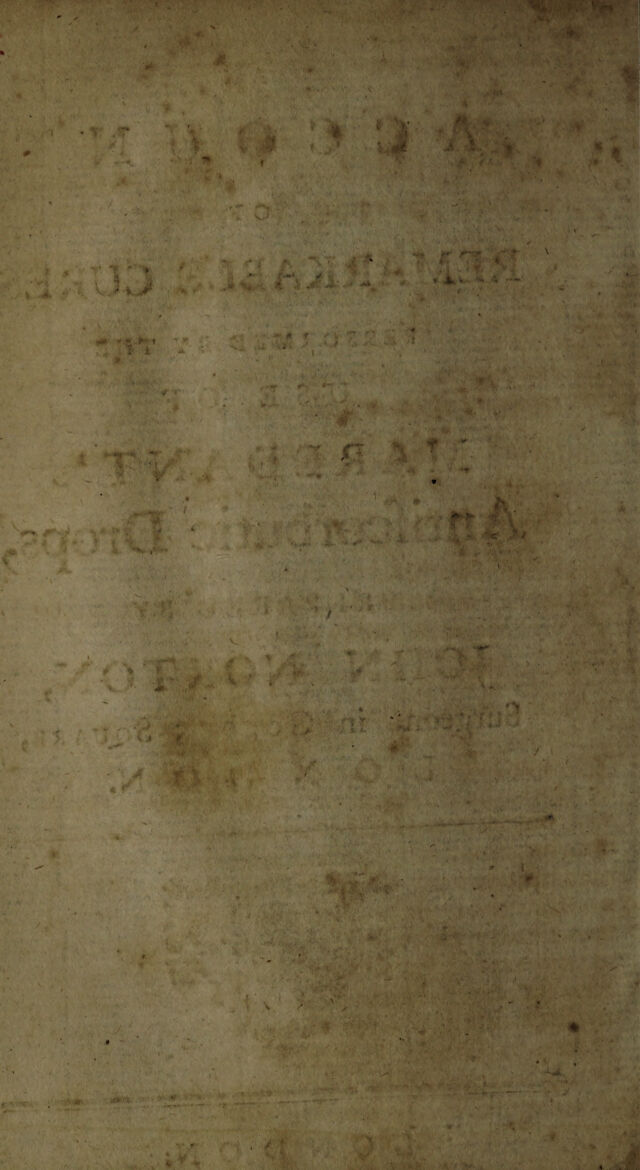 ACCOUN
OF
REMARKABLE CURES
PERFORMED BY THE
USE OF
MAREDANT's
Antiſcorbutic Drops,
PREPARED BY
JOHN NORTON,
Surgeon, in SQUARE,
LONDON.
LONDON: